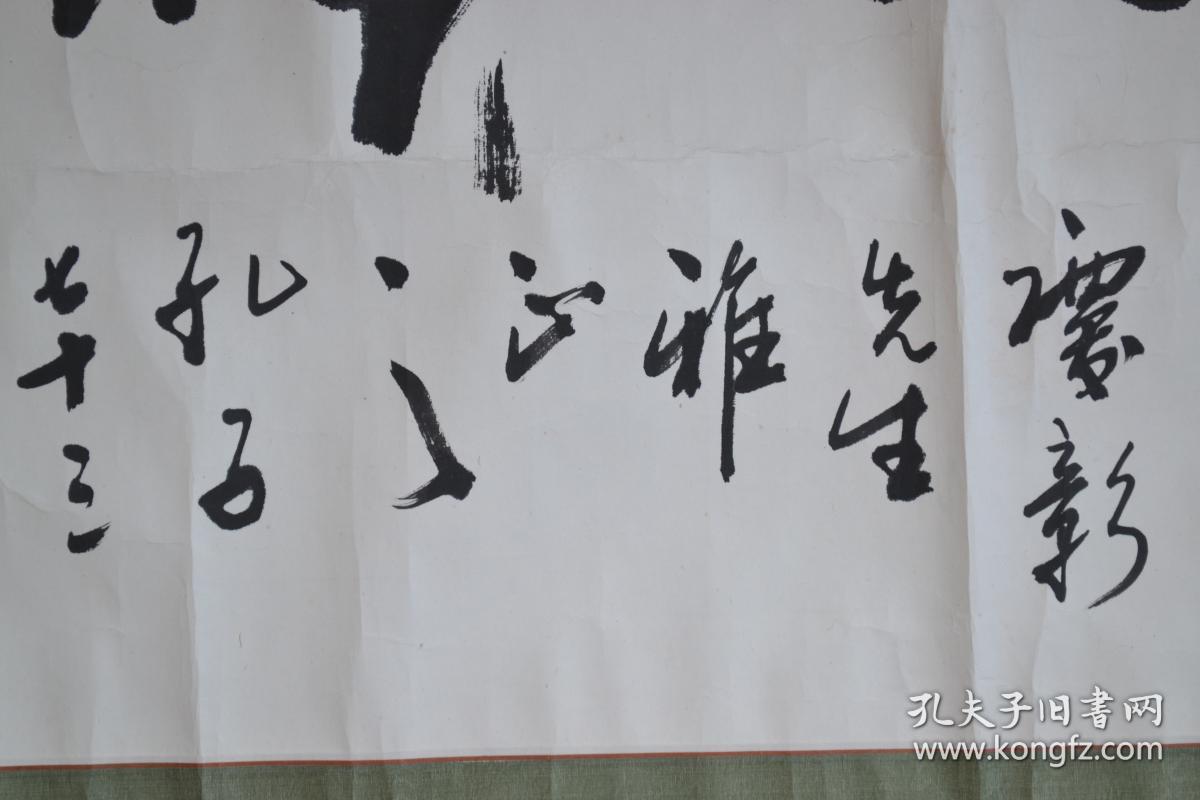 彰
先生
雅
正
之
孔子
七十三
孔夫子旧书网
www.kongfz.com